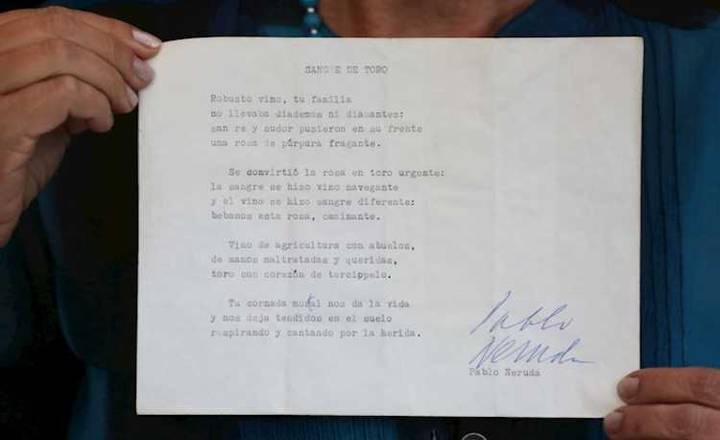 SANGRE DE TORO
Robusto vino, tu familia
no llevaba diademas ni diamantes:
sangre y sudor pusieron en su frente
una rosa de púrpura fragante.
Se convirtió la rosa en toro urgente:
la sangre se hizo vino navegante
y el vino se hizo sangre diferente:
bebamos esta rosa, caminante.
Vino de agricultura con abuelos,
de manos maltratadas y queridas,
toro con corazón de terciopelo.
Tu cornada mortal nos da la vida
y nos deja tendidos en el suelo
respirando y cantando por la herida.
Pablo
Neruda
Pablo Neruda